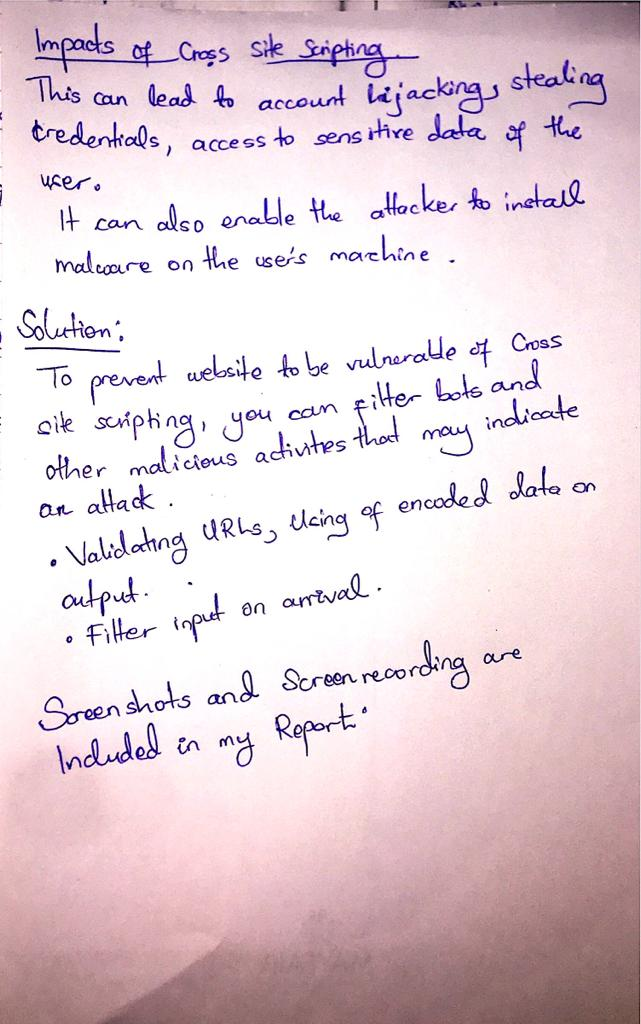 Impacts of Cross Site Scripting
This can lead to account hijacking, stealing
credentials, access to sensitive data of the
user.
It can also enable the attacker to install
malware on the user's machine.
Solution:
To prevent website to be vulnerable of Cross
site scripting, you can filter bots and
other malicious activities that may indicate
an attack.
• Validating URLs, Using of encoded data on
output.
• Filter input on arrival.
Screenshots and Screenrecording are
Included in my Report.